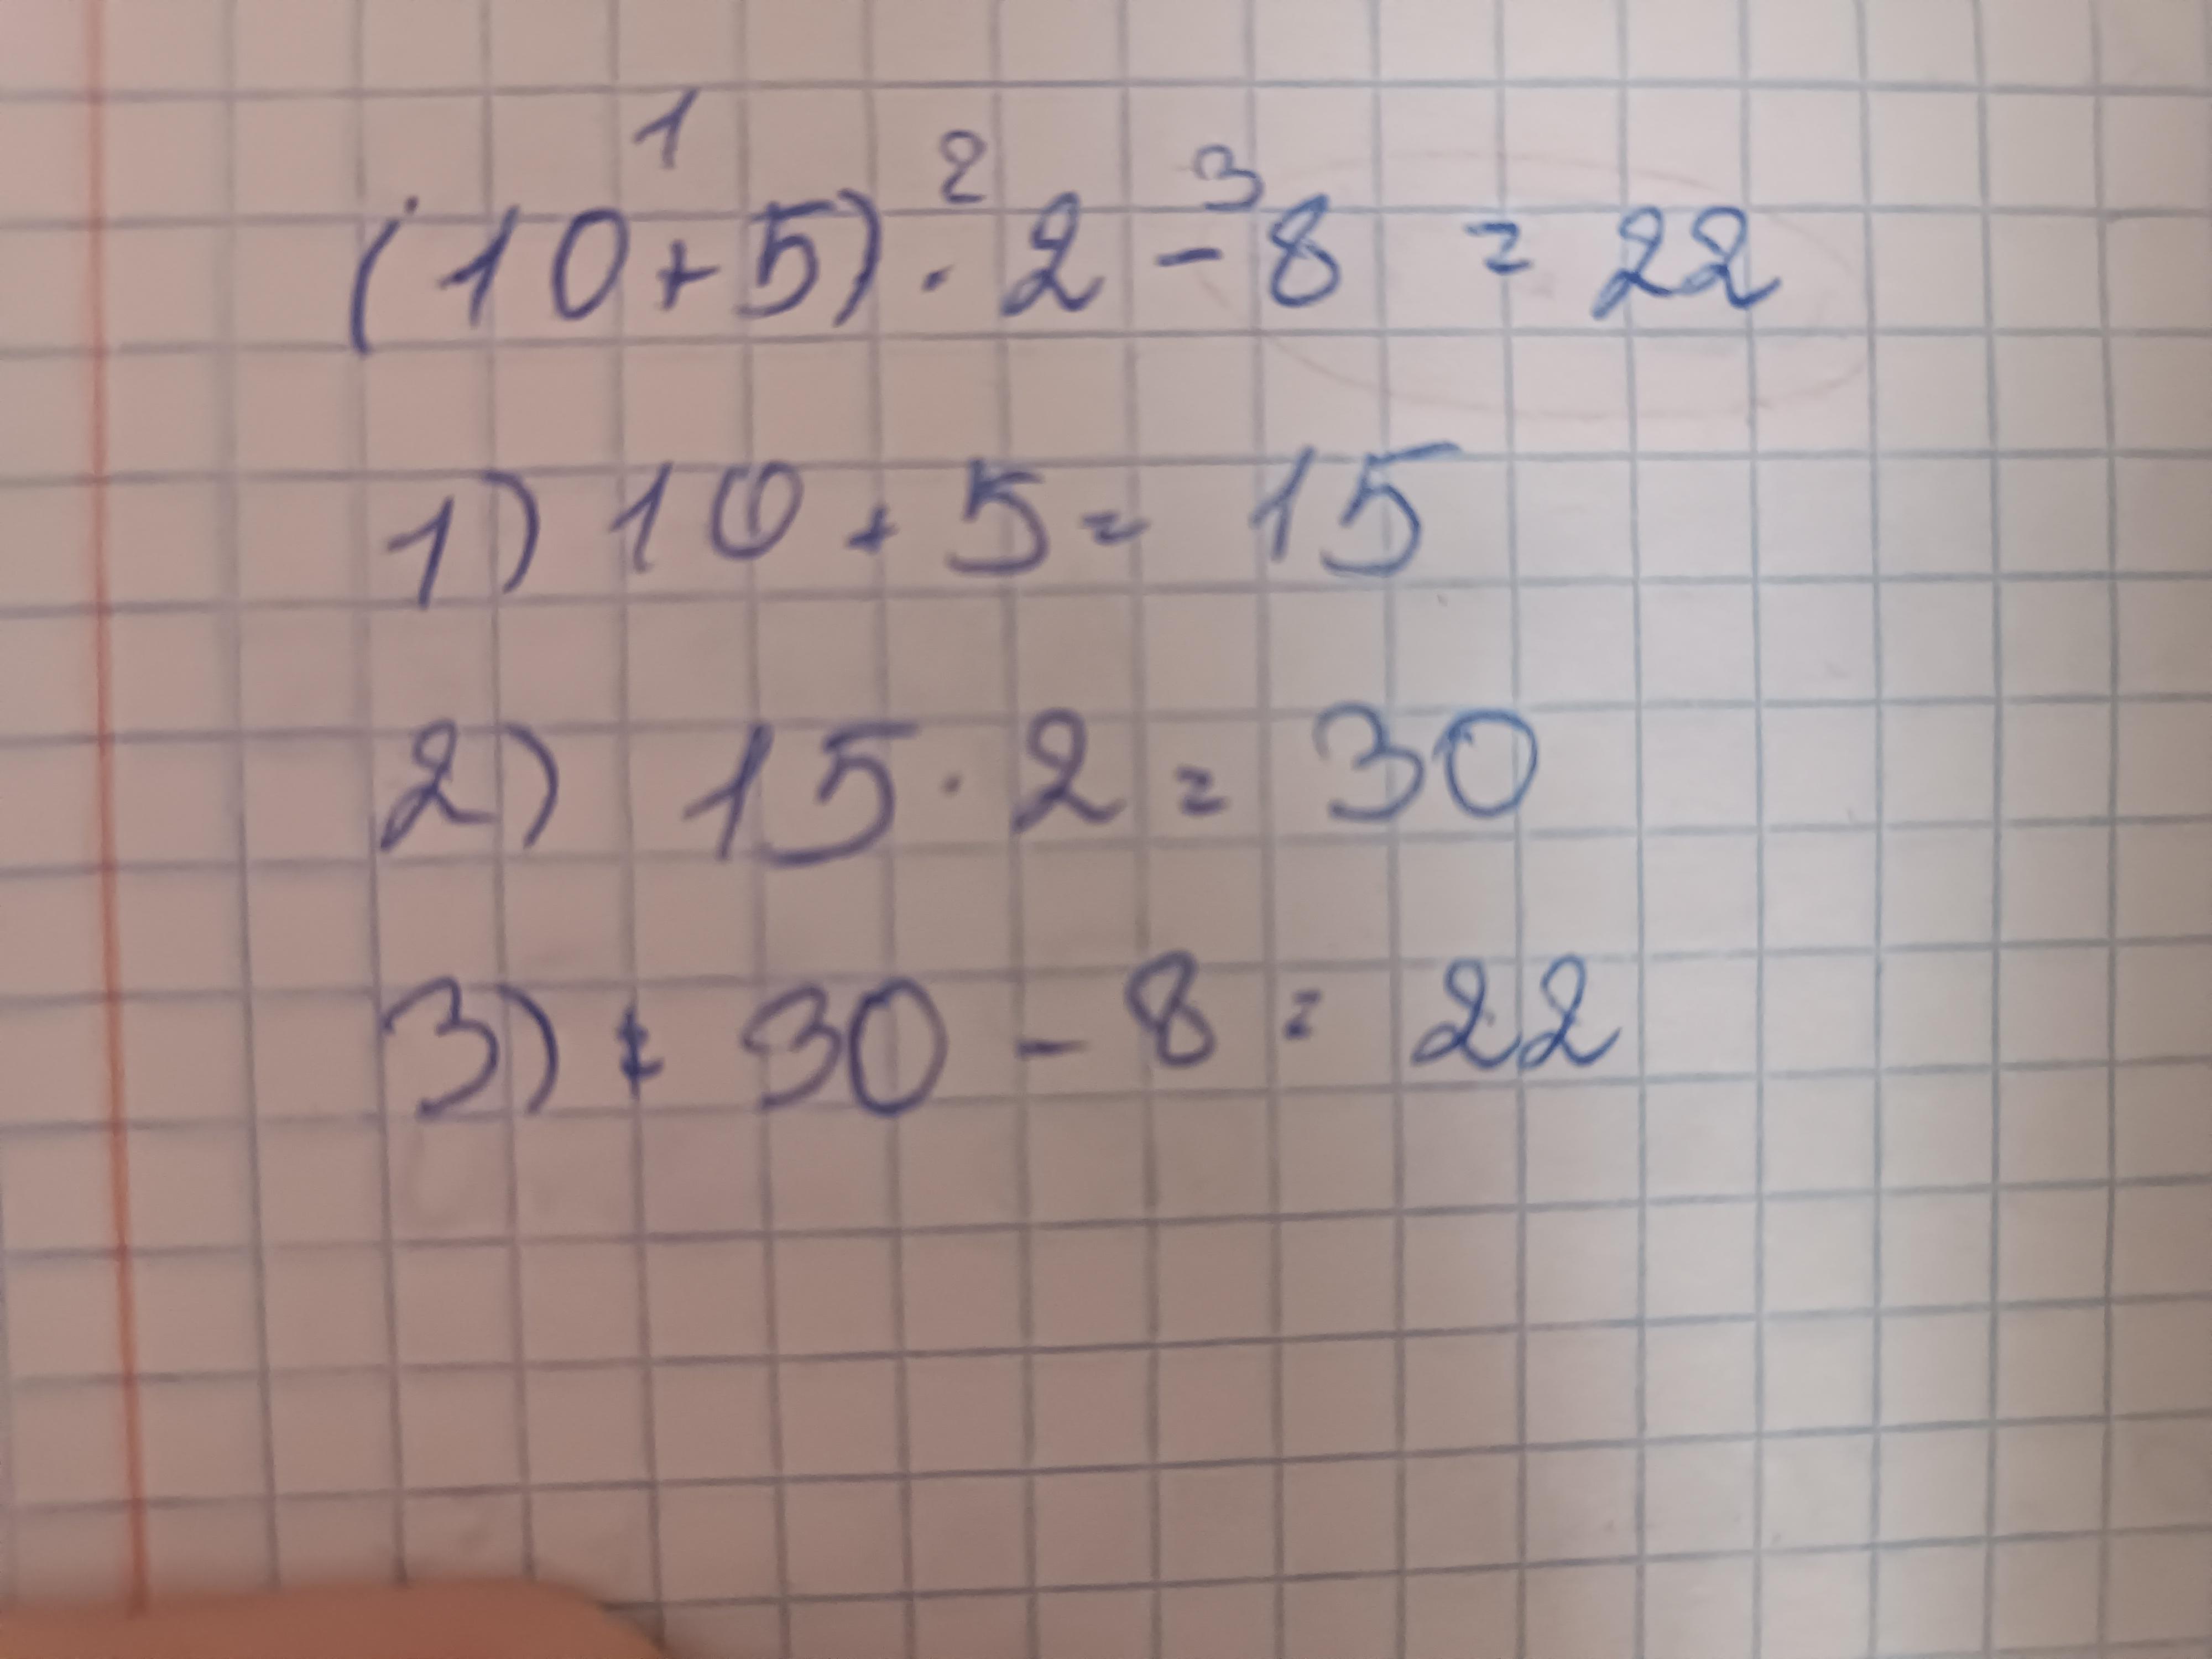 1 2 3
(10+5) · 2 - 8 = 22
1) 10 + 5 = 15
2) 15 · 2 = 30
3) 30 - 8 = 22